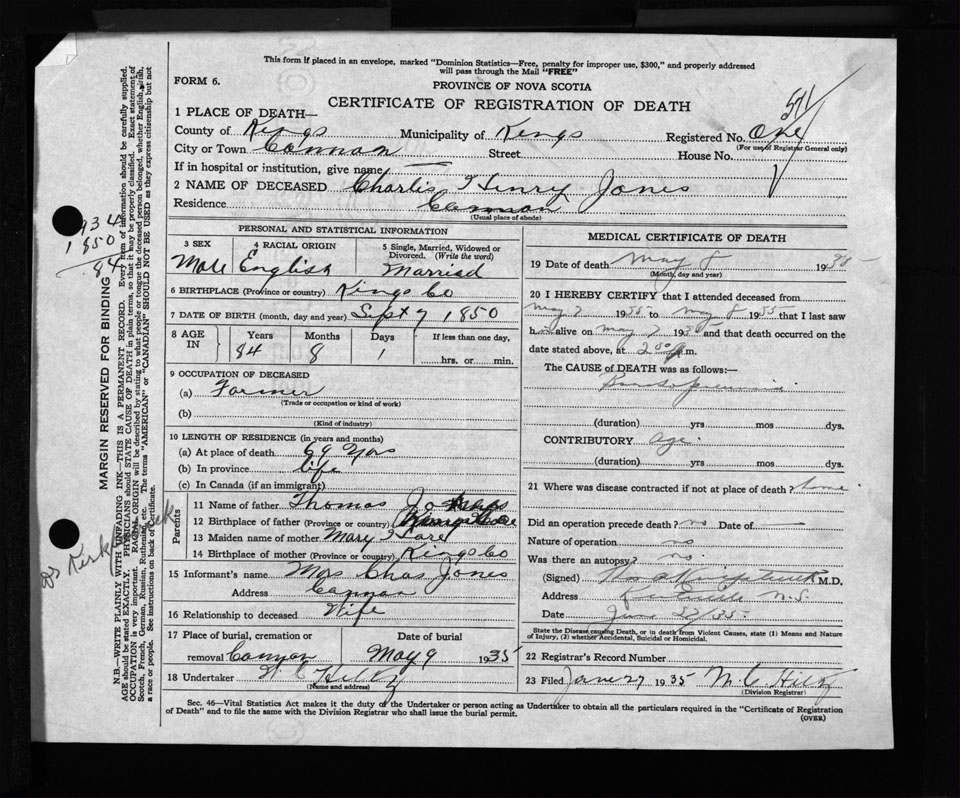 This form if placed in an envelope, marked "Dominion Statistics—Free, penalty for improper use, $300," and properly addressed
will pass through the Mail "FREE"
FORM 6.
PROVINCE OF NOVA SCOTIA
CERTIFICATE OF REGISTRATION OF DEATH
571
1 PLACE OF DEATH—
County of Kings Municipality of Kings Registered No. One
(For use of Registrar General only)
City or Town Cannan Street House No.
If in hospital or institution, give name
2 NAME OF DECEASED Charlis Henry Jones
Residence Cannan
(Usual place of abode)
PERSONAL AND STATISTICAL INFORMATION
3 SEX 4 RACIAL ORIGIN 5 Single, Married, Widowed or Divorced. (Write the word)
Male English Married
6 BIRTHPLACE (Province or country) Kings Co
7 DATE OF BIRTH (month, day and year) Sept 7 1850
8 AGE IN Years Months Days If less than one day,
84 8 1 hrs. or min.
9 OCCUPATION OF DECEASED
(a) Farmer
(Trade or occupation or kind of work)
(b)
(Kind of industry)
10 LENGTH OF RESIDENCE (in years and months)
(a) At place of death yrs
(b) In province life
(c) In Canada (if an immigrant)
Parents
11 Name of father Thomas Jones
12 Birthplace of father (Province or country)
13 Maiden name of mother Mary
14 Birthplace of mother (Province or country) Kings Co
15 Informant's name Mrs Chas Jones
Address Cannan
16 Relationship to deceased Wife
17 Place of burial, cremation or Date of burial
removal Canyon May 9 1935
18 Undertaker
(Name and address)
MEDICAL CERTIFICATE OF DEATH
19 Date of death May 8 1935
(Month, day and year)
20 I HEREBY CERTIFY that I attended deceased from
May 1935 to May 8 1935 that I last saw
h alive on May 1935 and that death occurred on
date stated above, at m.
The CAUSE of DEATH was as follows:—
(duration) yrs mos dys.
CONTRIBUTORY age.
(duration) yrs mos dys.
21 Where was disease contracted if not at place of death? home
Did an operation precede death? no Date of
Nature of operation no
Was there an autopsy? no.
(Signed) M.D.
Address N.S.
Date June /35
State the Disease causing Death, or in death from Violent Causes, state (1) Means and Nature
of Injury, (2) whether Accidental, Suicidal or Homicidal.
22 Registrar's Record Number
23 Filed June 27 1935
(Division Registrar)
Sec. 46—Vital Statistics Act makes it the duty of the Undertaker or person acting as Undertaker to obtain all the particulars required in the "Certificate of Registration
of Death" and to file the same with the Division Registrar who shall issue the burial permit.
(OVER)
MARGIN RESERVED FOR BINDING
N.B.—WRITE PLAINLY WITH UNFADING INK—THIS IS A PERMANENT RECORD. Every item of information should be carefully supplied.
AGE should be stated EXACTLY. PHYSICIANS should STATE CAUSE OF DEATH in plain terms, so that it may be properly classified. Exact statement of
OCCUPATION is very important. RACIAL ORIGIN will be described by stating to what people or tongue the deceased person belonged, whether English, Irish,
Scotch, French, German, Russian, Ruthenian, etc. The terms "AMERICAN" or "CANADIAN" SHOULD NOT BE USED as they express citizenship but not
a race or people. See instructions on back of certificate.
1934
1850
84